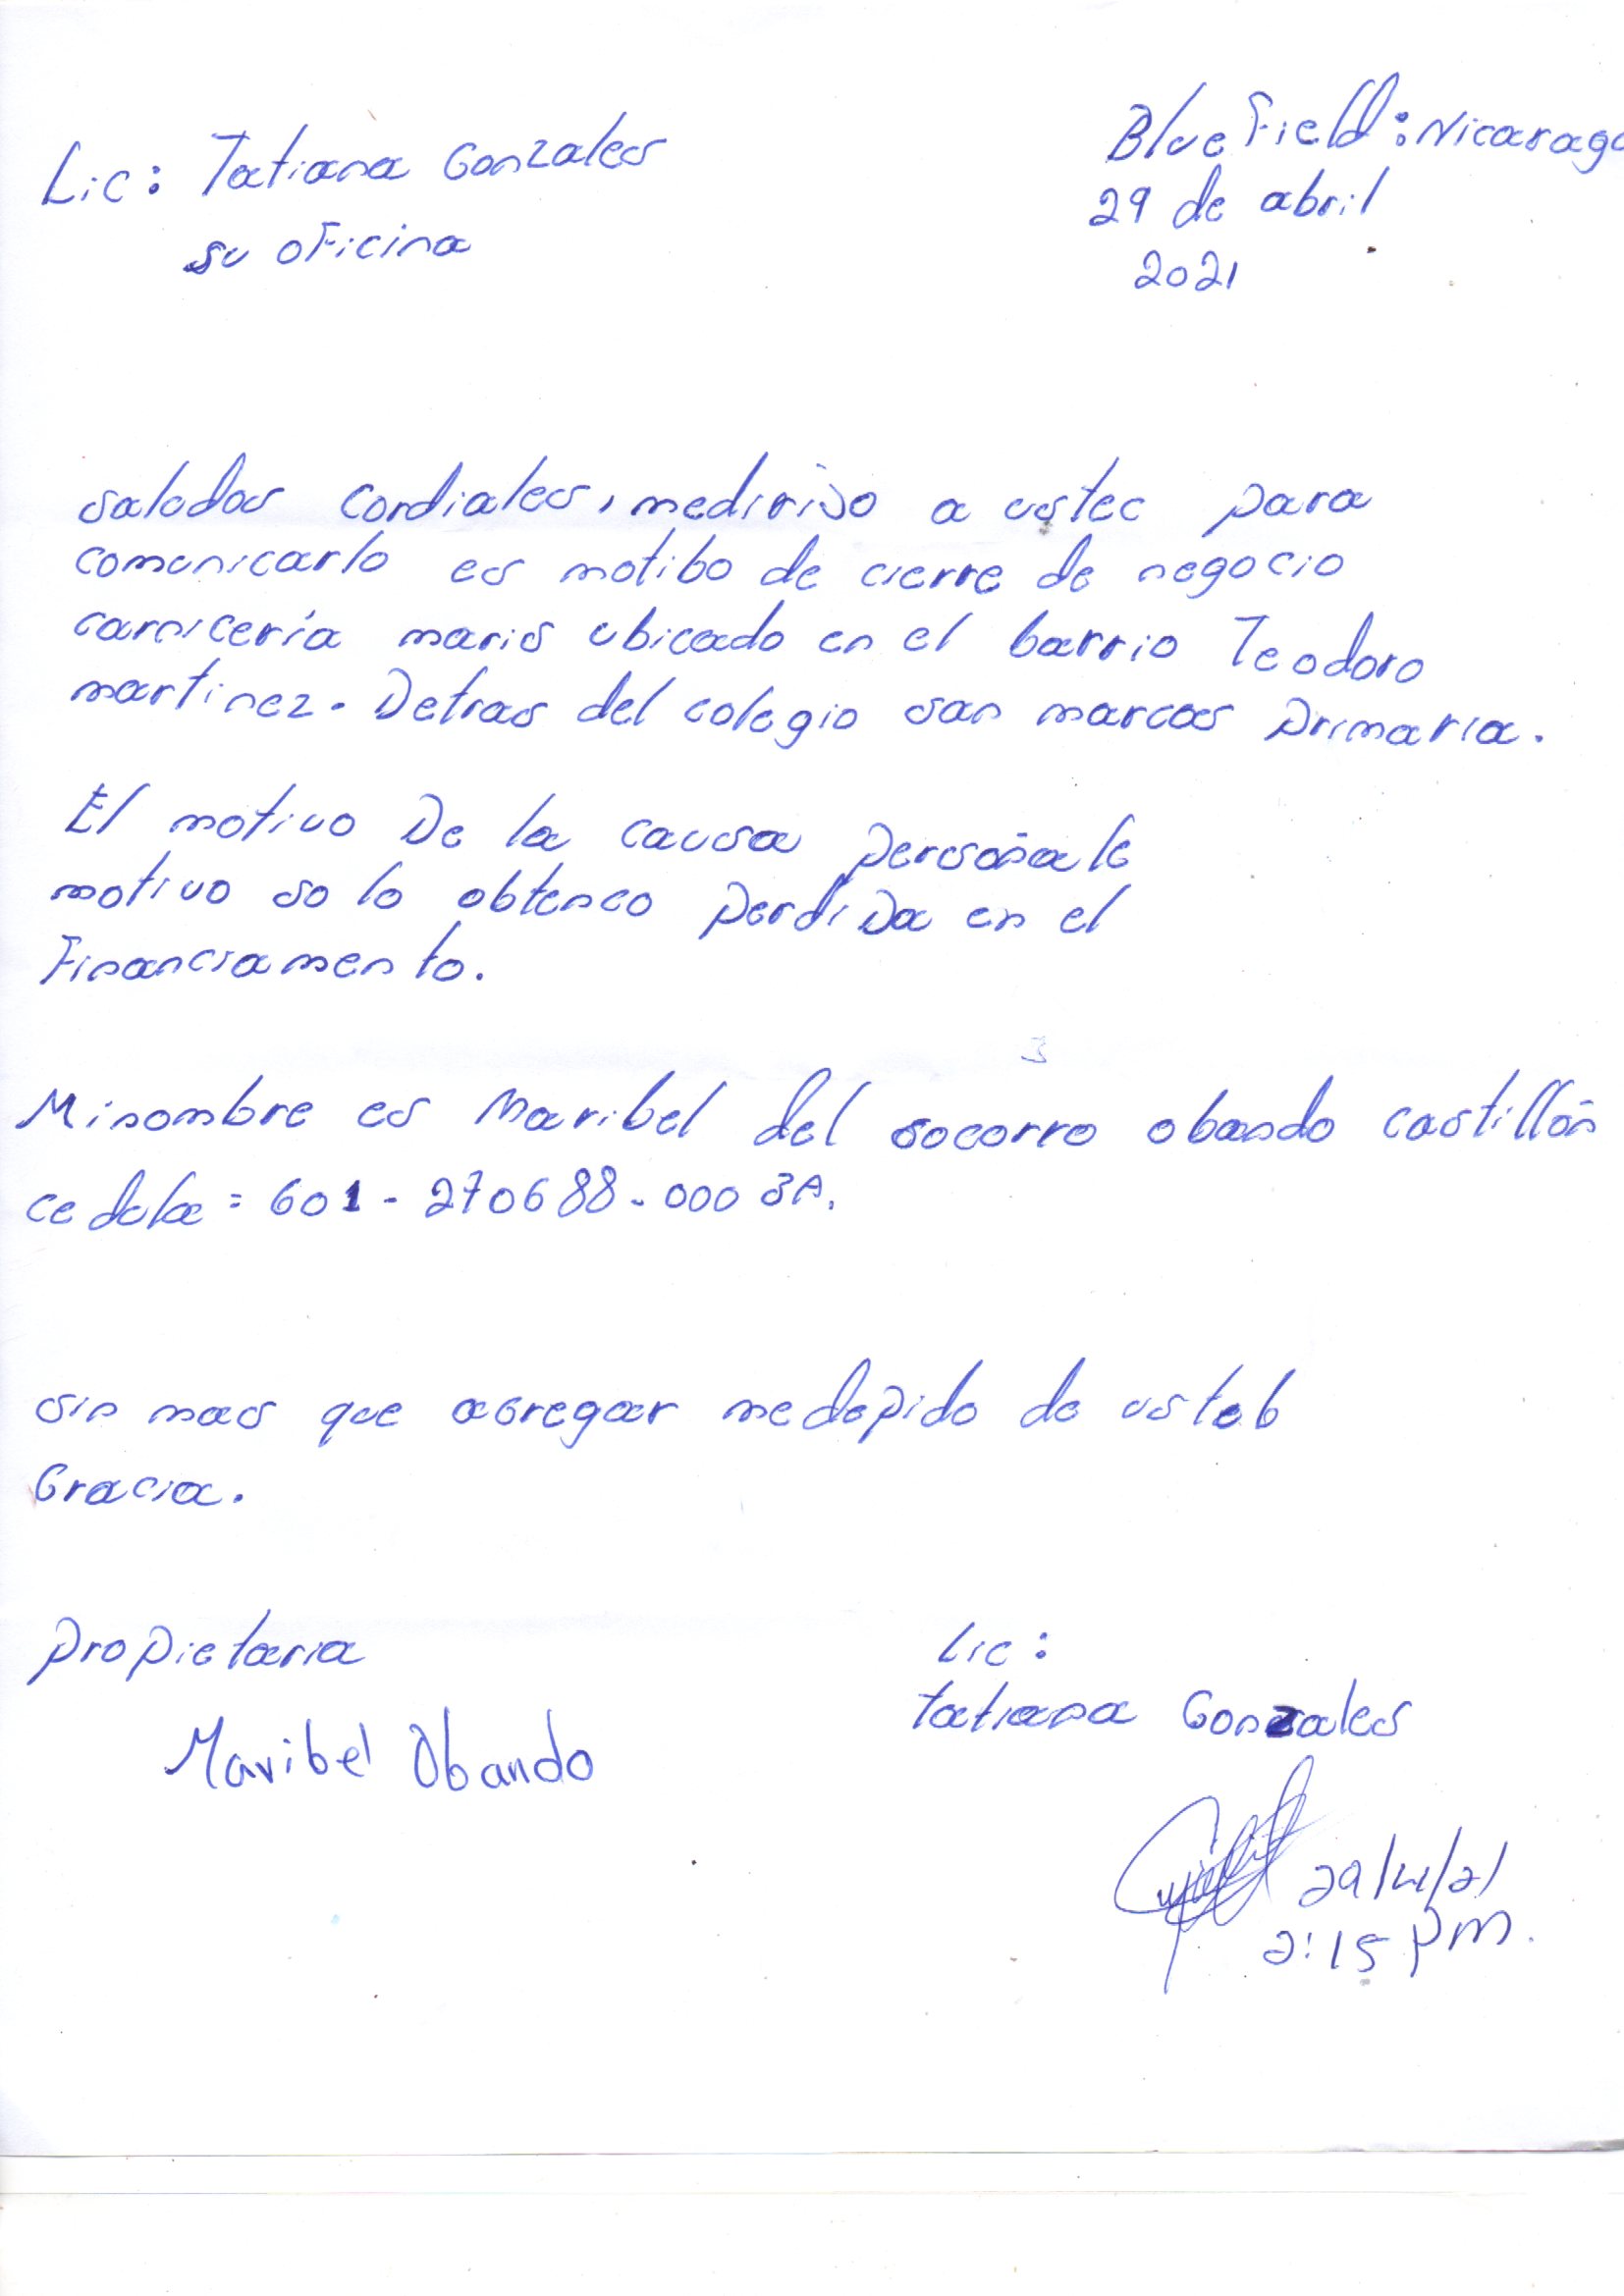 Blue Field: Nicarag
Lic: Tatiana Gonzales
29 de abril
su oficina
2021
saludos cordiales, medirijo a ustec para
comunicarlo es motibo de cierre de negocio
carnicería maris ubicado en el barrio Teodoro
martinez. Detras del colegio san marcos primaria.
El motivo De la causa personale
motivo so lo obtenco perdiDa en el
Financiamento.
3
Minombre es Maribel del socorro obando castillón
cedula = 601-270688-0003A.
sin mas que agregar medepido de usteb
Gracia.
propietaria
Lic:
tatiana Gonzales
Maribel Obando
29/4/21
2:15 pm.